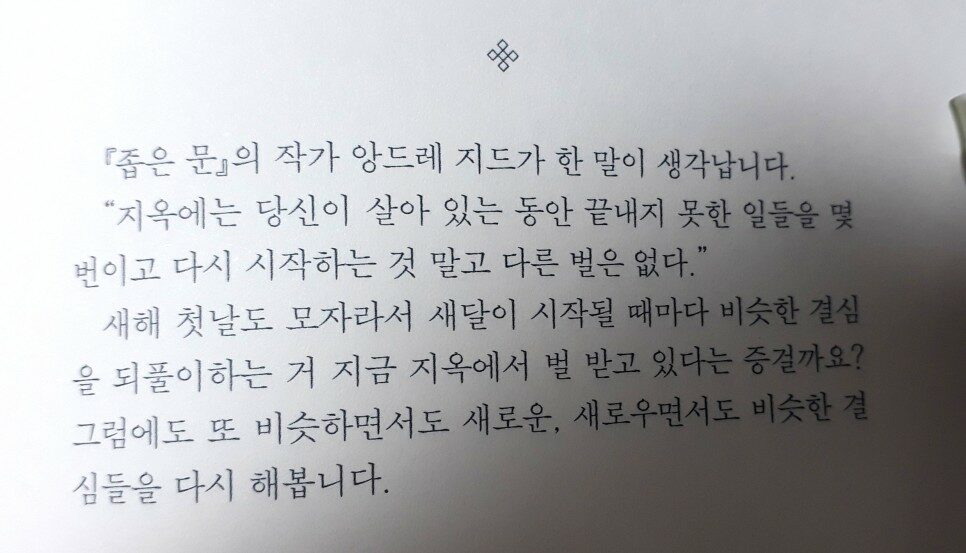 『좁은 문』의 작가 앙드레 지드가 한 말이 생각납니다.
“지옥에는 당신이 살아 있는 동안 끝내지 못한 일들을 몇
번이고 다시 시작하는 것 말고 다른 벌은 없다.”
새해 첫날도 모자라서 새달이 시작될 때마다 비슷한 결심
을 되풀이하는 거 지금 지옥에서 벌 받고 있다는 증걸까요?
그럼에도 또 비슷하면서도 새로운, 새로우면서도 비슷한 결
심들을 다시 해봅니다.